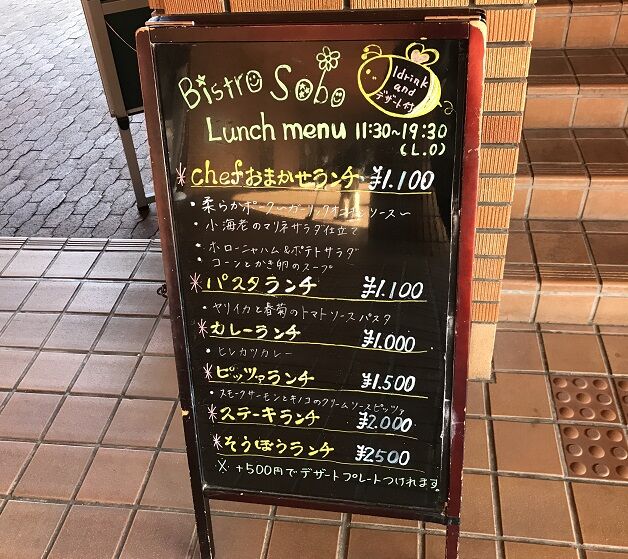 Bistro Sobo
1drink
and
デザート付
Lunch menu 11:30~19:30
(L.O)
* chefおまかせランチ ¥1.100
・柔らかポーク〜ガーリックオニオンソース〜
・小海老のマリネサラダ仕立て
・ボローニャハム&ポテトサラダ
・コーンとかき卵のスープ
* パスタランチ ¥1.100
・ヤリイカと春菊のトマトソースパスタ
* カレーランチ ¥1.000
・ヒレカツカレー
* ピッツァランチ ¥1.500
・スモークサーモンとキノコのクリームソースピッツァ
* ステーキランチ ¥2.000
* そうぼうランチ ¥2500
※ +500円でデザートプレートつけれます